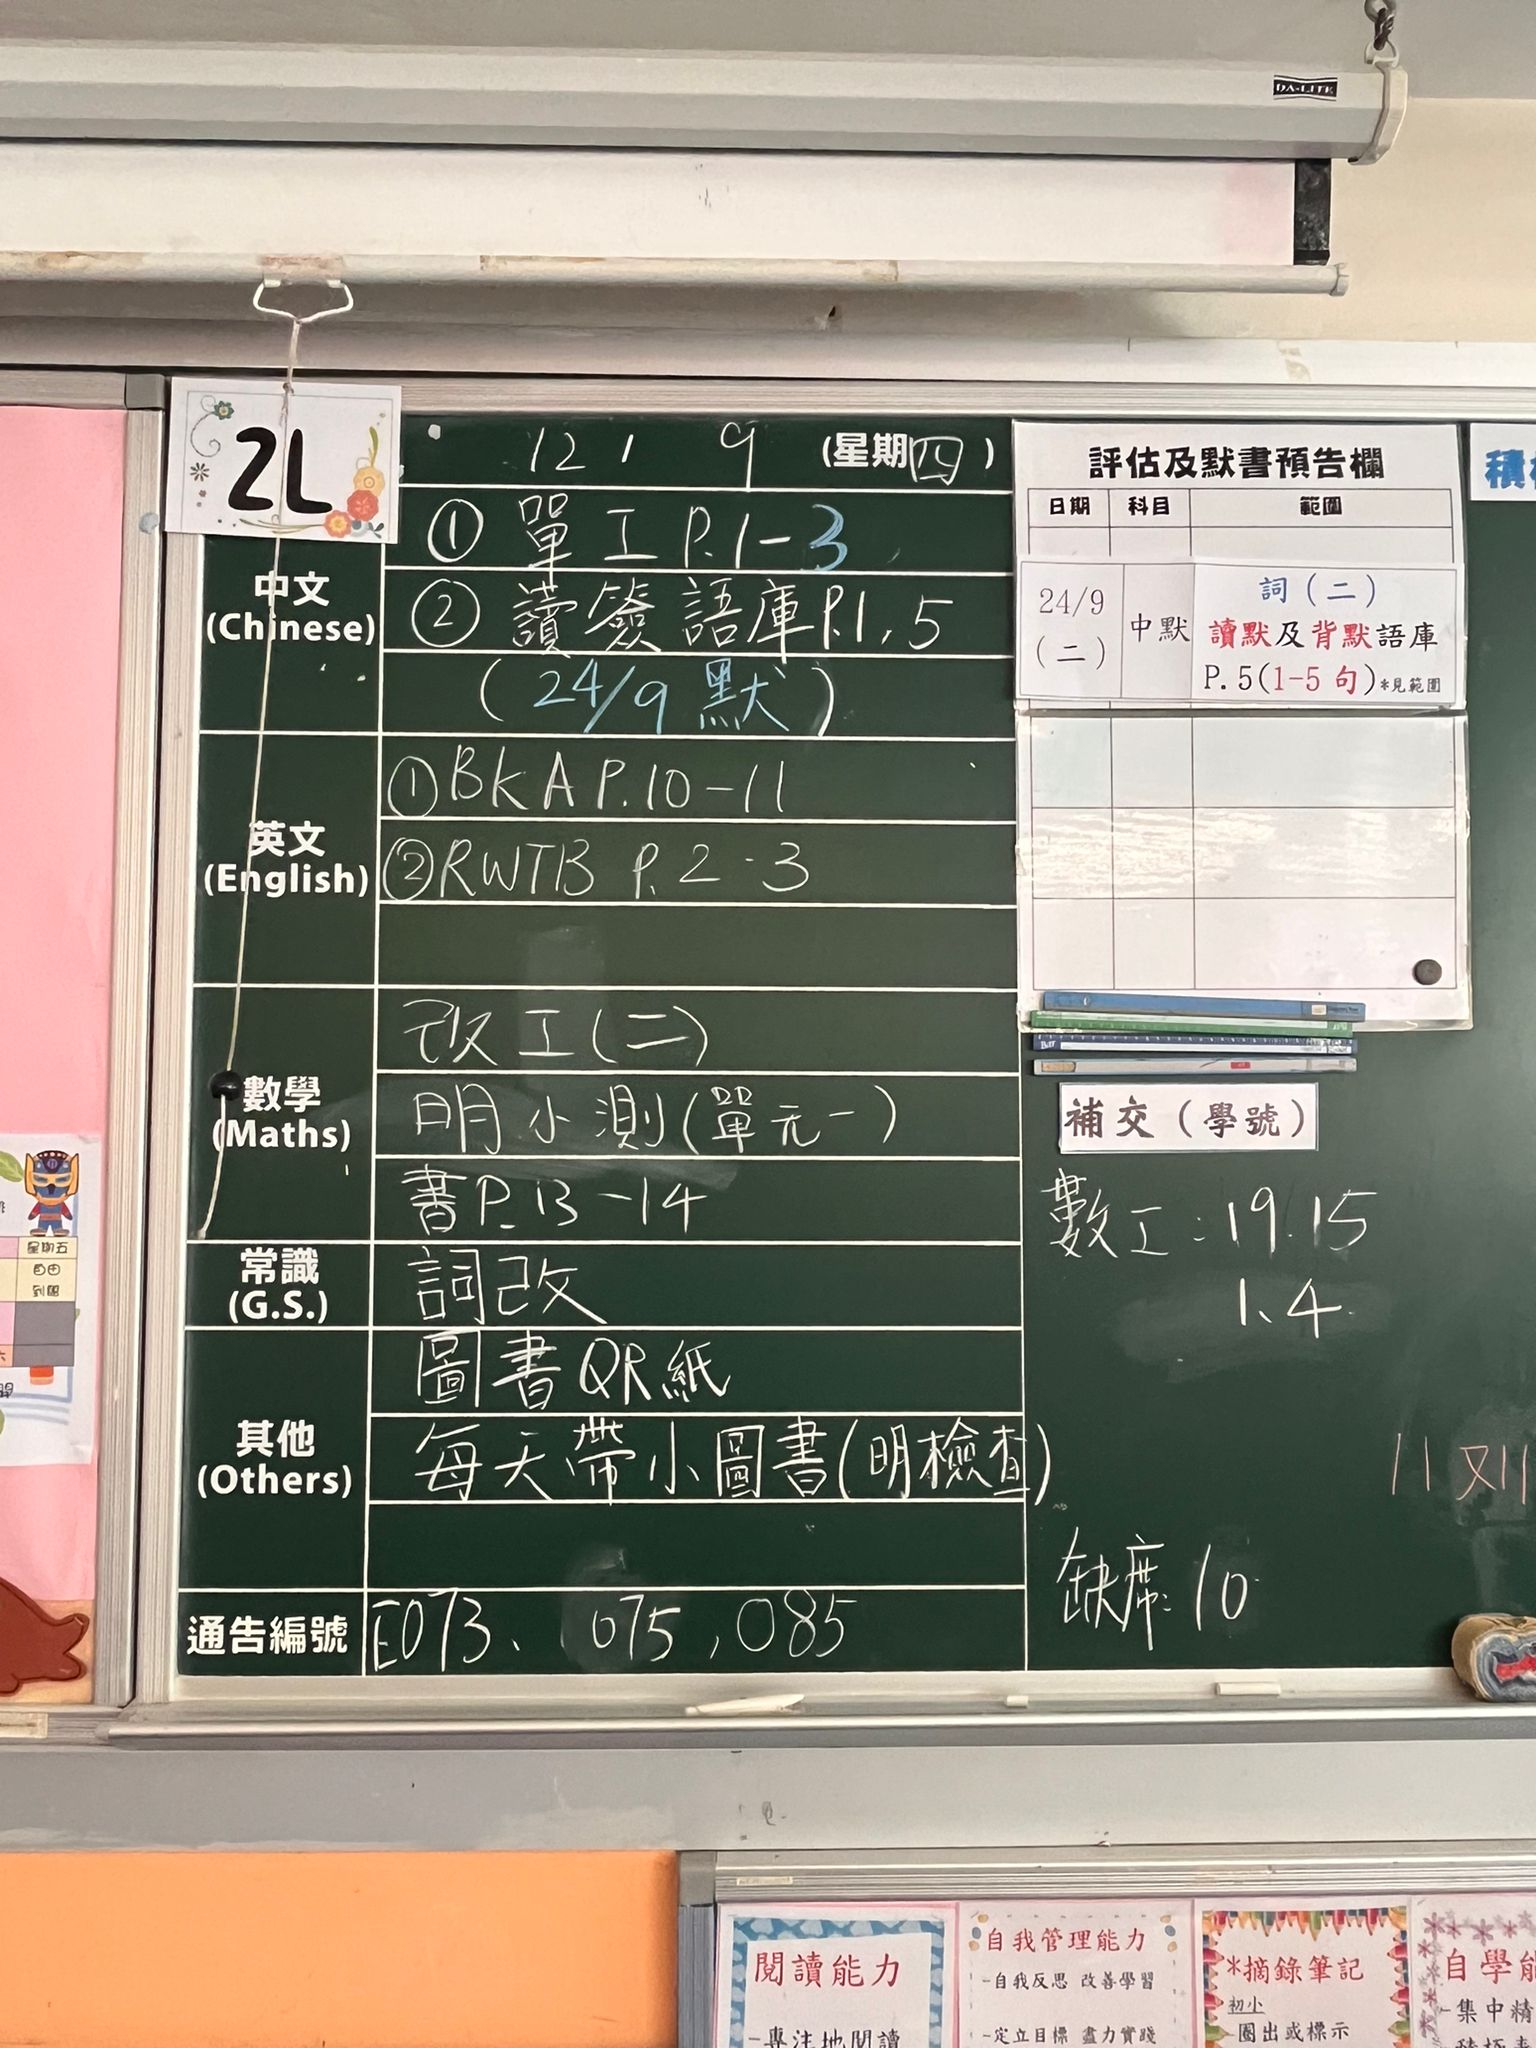 DA-LITE
2L
12 / 9 (星期四)
中文
(Chinese)
① 單工 P.1-3
② 讀簽語庫 P.1, 5
(24/9 默)
英文
(English)
① BKA P.10-11
② RWTB P. 2-3
數學
(Maths)
改工(二)
明小測(單元一)
書 P.13-14
常識
(G.S.)
詞改
其他
(Others)
圖書QR紙
每天帶小圖書(明檢查)
通告編號
E073、075,085
評估及默書預告欄
日期 科目 範圍
24/9
(二)
中默
詞(二)
讀默及背默語庫
P.5(1-5句)*見範圍
補交(學號)
數工:19.15
1、4
缺席:10
積
星期五
自由
閱讀能力
-專注地閱讀
自我管理能力
-自我反思 改善學習
-定立目標 盡力實踐
*摘錄筆記
初小
-圈出或標示
自學能
-集中精